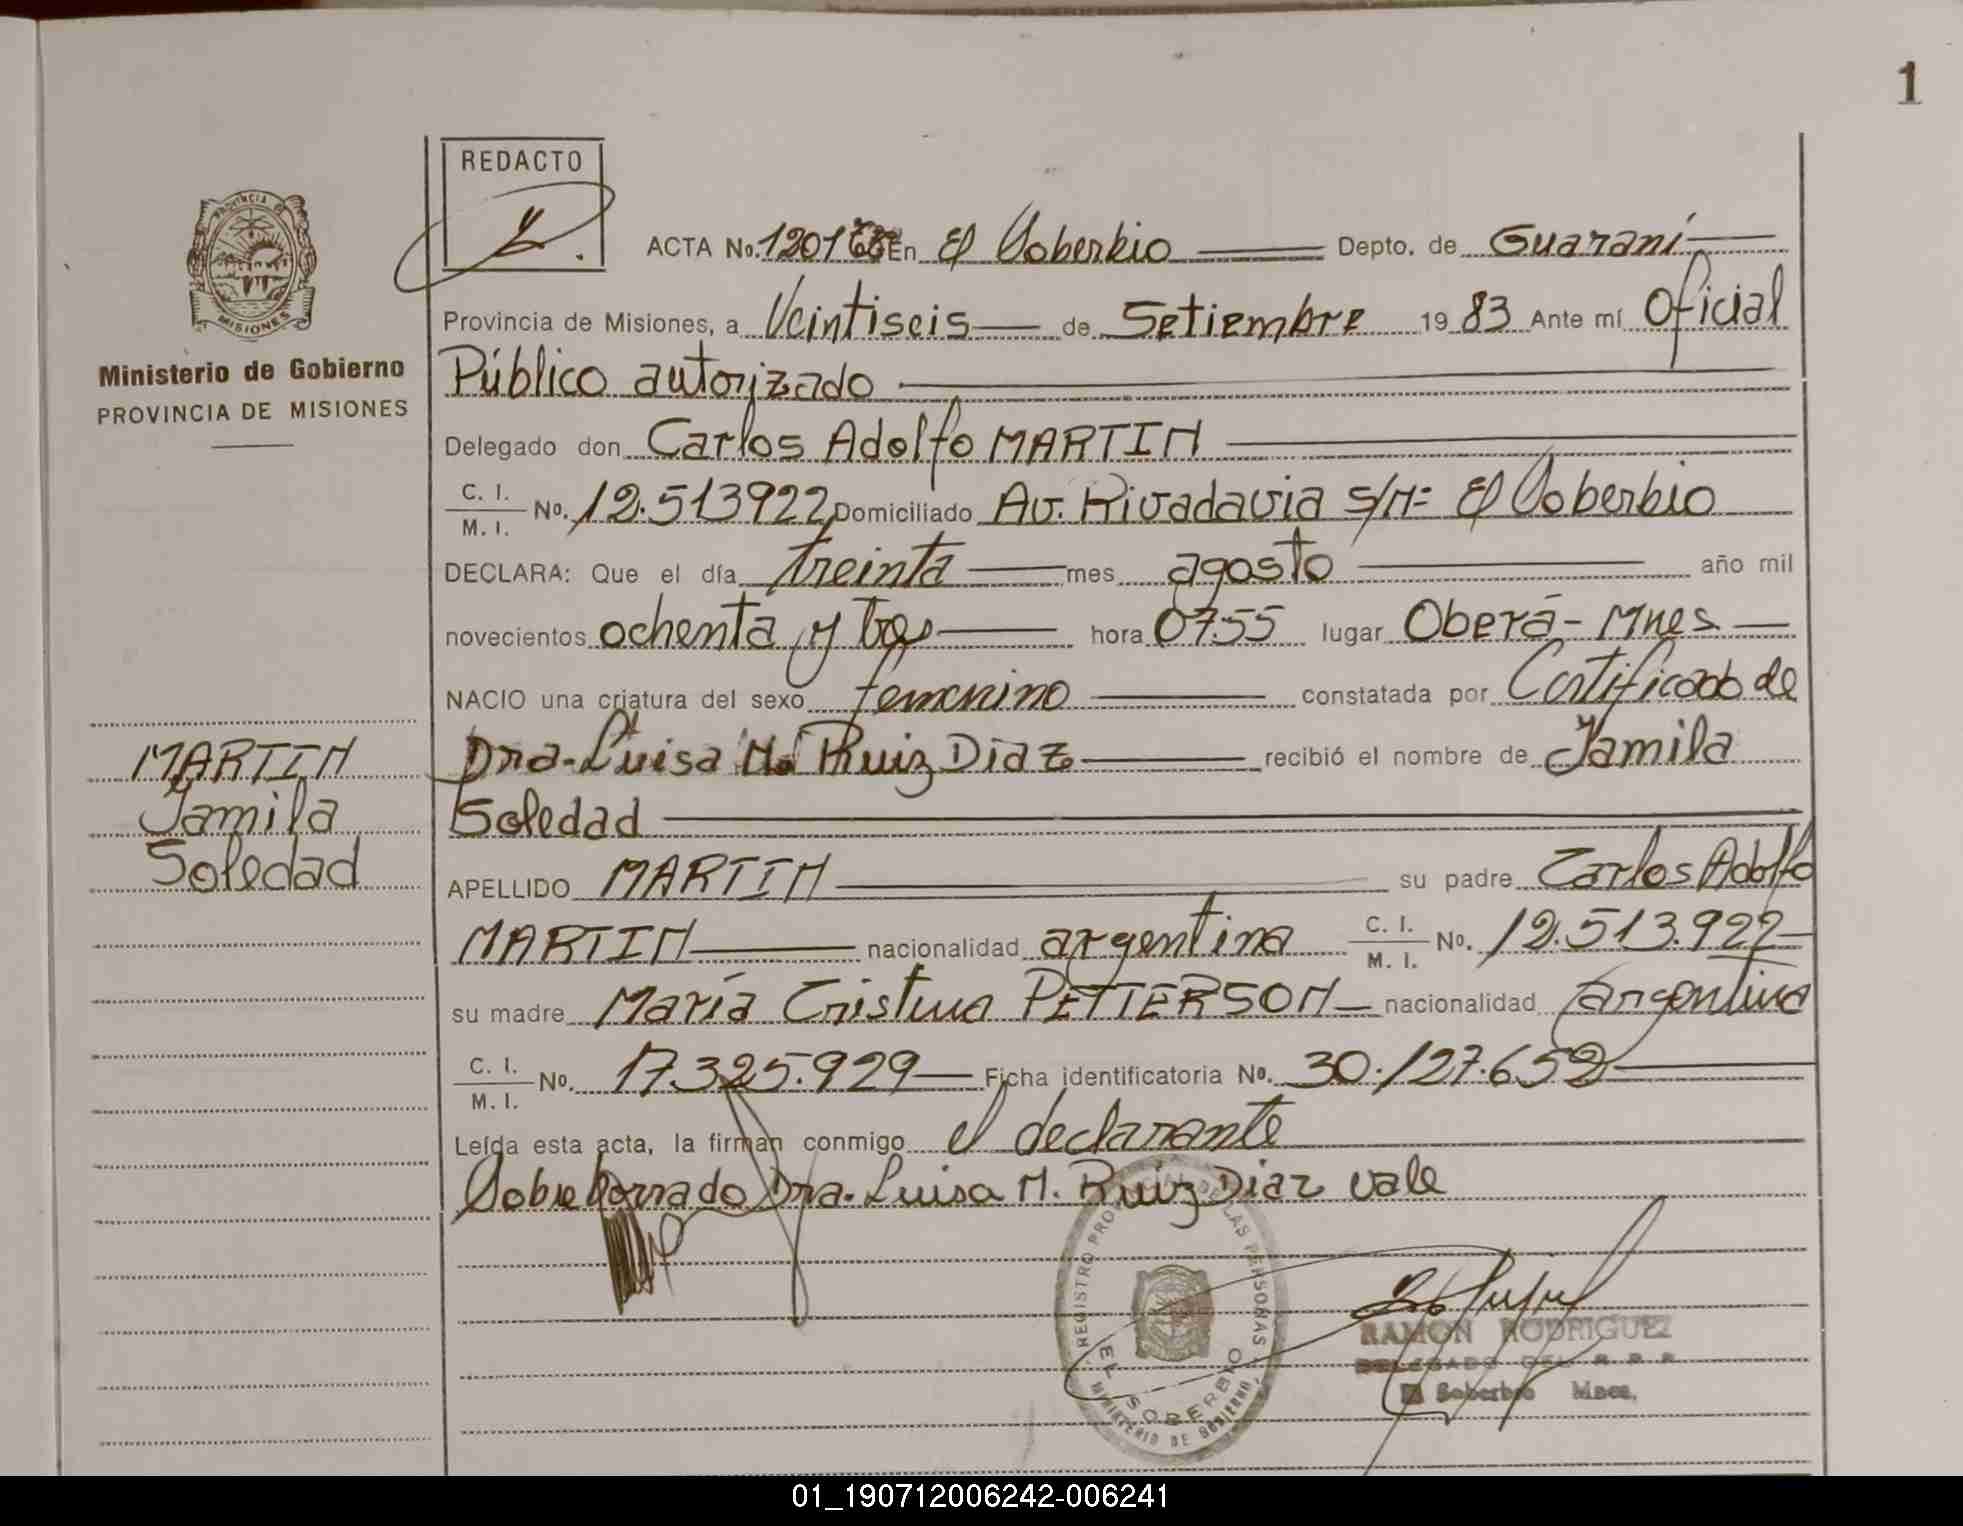 1
REDACTO
PROVINCIA DE
MISIONES
Ministerio de Gobierno
PROVINCIA DE MISIONES
ACTA No. 1201 En El Soberbio Depto. de Guaraní
Provincia de Misiones, a Veintiseis de Setiembre 19 83 Ante mí Oficial
Público autorizado
Delegado don Carlos Adolfo MARTIN
C. I. M. I. No. 12.513922 Domiciliado Av. Rivadavia S/N= El Soberbio
DECLARA: Que el día treinta mes agosto año mil
novecientos ochenta y tres hora 0755 lugar Oberá-Mnes
NACIO una criatura del sexo femenino constatada por Certificado de
Dra. Luisa M. Ruiz Diaz recibió el nombre de Jamila
Soledad
MARTIN
Jamila
Soledad
APELLIDO MARTIN su padre Carlos Adolfo
MARTIN nacionalidad argentina C. I. M. I. No. 12.513.922
su madre María Cristina PETTERSON nacionalidad argentina
C. I. M. I. No. 17.325.929 Ficha identificatoria No. 30.127.652
Leída esta acta, la firman conmigo el declarante
Sobre borrado Dra. Luisa M. Ruiz Diaz vale
REGISTRO PROVINCIAL DE LAS PERSONAS
EL SOBERBIO
MINISTERIO DE GOBIERNO
RAMON RODRIGUEZ
DELEGADO DEL R. P. P.
El Soberbio Mnes.
01_190712006242-006241